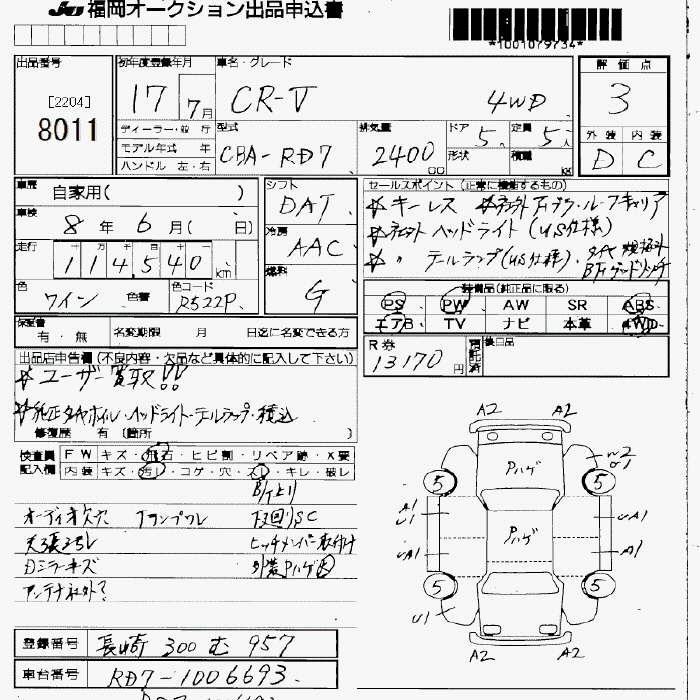 JU 福岡オークション出品申込書
*1001079734*
出品番号 初年度登録年月 車名・グレード 評価点
[2204]
8011
17 7月 CR-V 4WD 3
ディーラー・並行 型式 排気量 ドア 定員 外装 内装
モデル年式 年 CBA-RD7 2400 5 5人 D C
ハンドル 左・右 cc 形状 積載 kg
車歴 自家用( ) シフト DAT
セールスポイント(正常に機能するもの)
車検 8年 6月( 日) 冷房 AAC
走行 114,540 km 燃料 G
☆キーレス ☆社外エアクラ・ルーフキャリア
☆社外ヘッドライト(US仕様)
☆ 〃 テールランプ(US仕様)・タイヤ規格外
色 ワイン 色替 色コード R522P
装備品(純正品に限る)
PS PW AW SR ABS
エアB TV ナビ 本革 4WD
保証書 有・無 名変期限 月 日迄に名変できる方
R券 13170円 預託済 後日品
出品店申告欄(不良内容・欠品など具体的に記入して下さい)
☆ユーザー買取!!
☆純正タイヤホイル・ヘッドライト・テールランプ・積込
修復歴 有 (箇所 )
検査員記入欄 FW キズ・飛石・ヒビ割・リペア跡・X要
内装 キズ・汚れ・コゲ・穴・スレ・キレ・破レ
オーディオ欠穴 Tランプワレ 下回りSC
天張汚れ ヒッチメンバー取付け
Dミラーキズ 外装Pハゲ大
アンテナ社外?
A2 A2
Pハゲ
5 5
A1
U1 UA1
Pハゲ
UA1 A1
5 5
U1
A2 A2
登録番号 長崎 300 む 957
車台番号 RD7-1006693